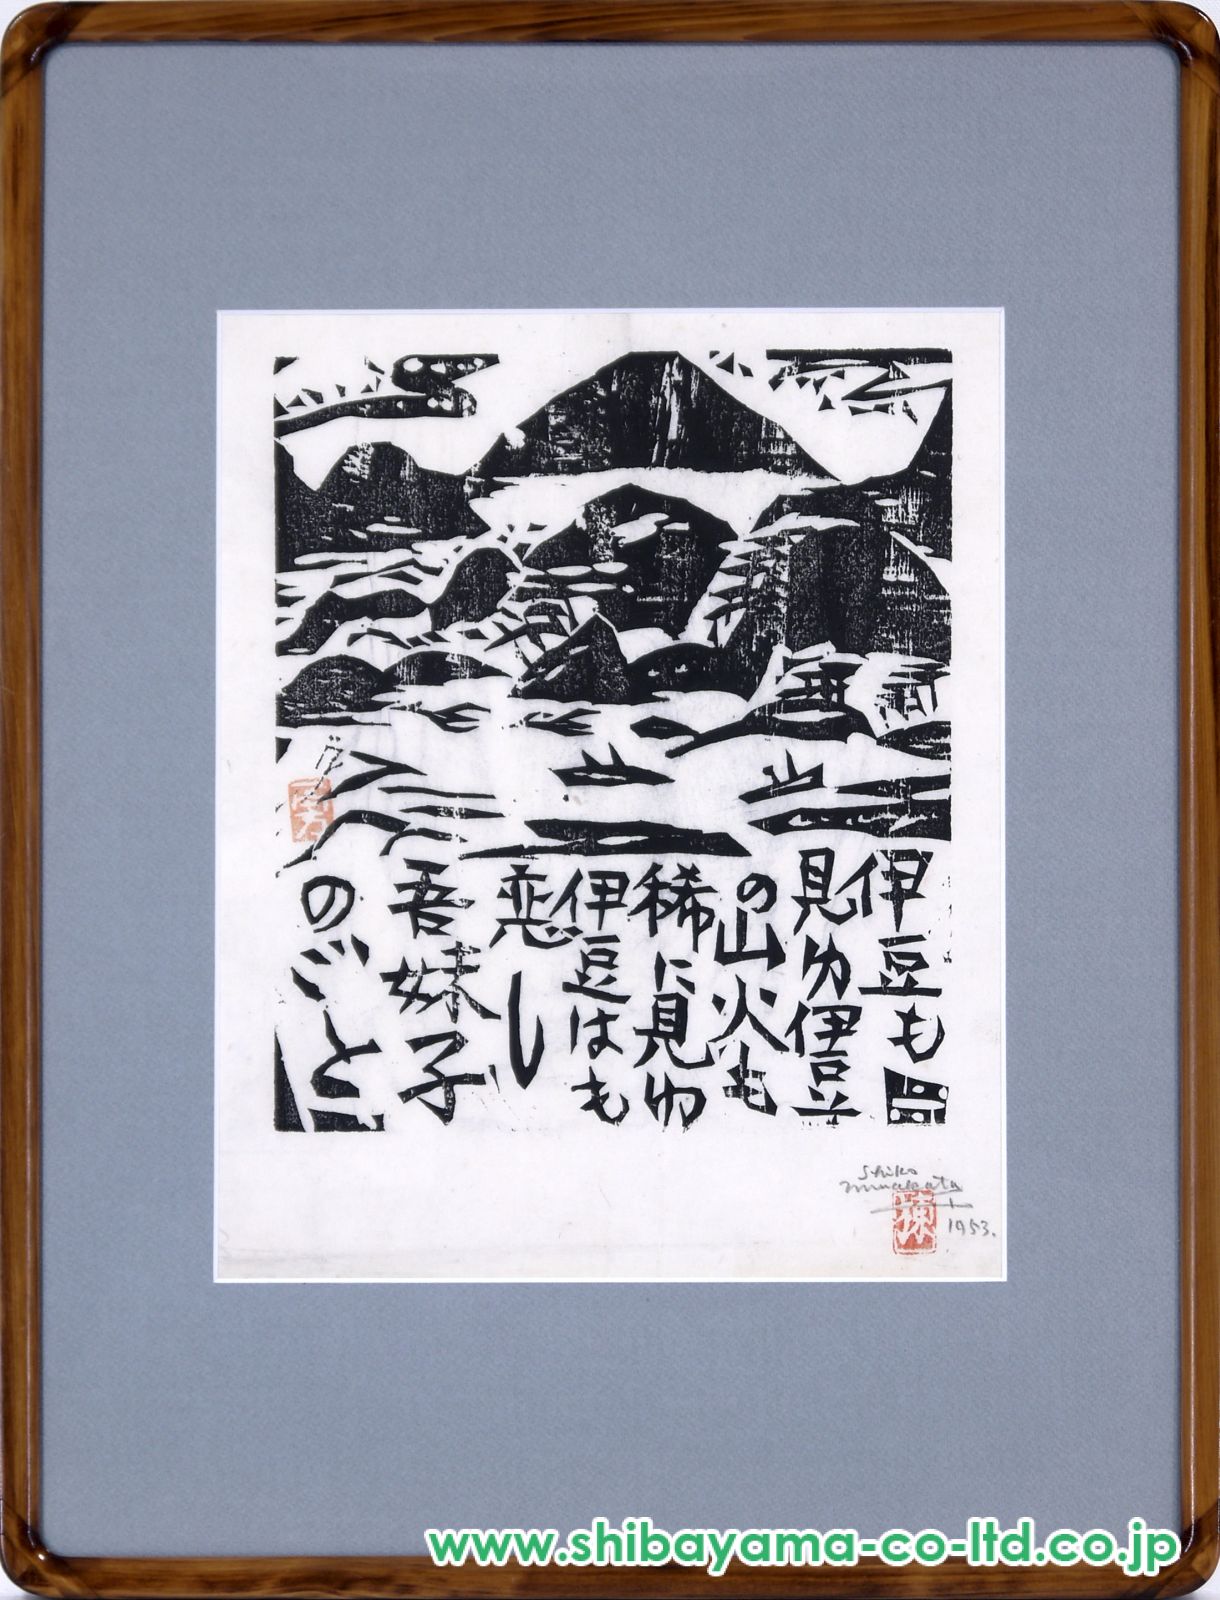 伊豆も
見ゆ伊豆
の山火も
稀に見ゆ
伊豆はも
恋し
吾妹子
のごと
Shiko
Munakata
1953.
棟
www.shibayama-co-ltd.co.jp